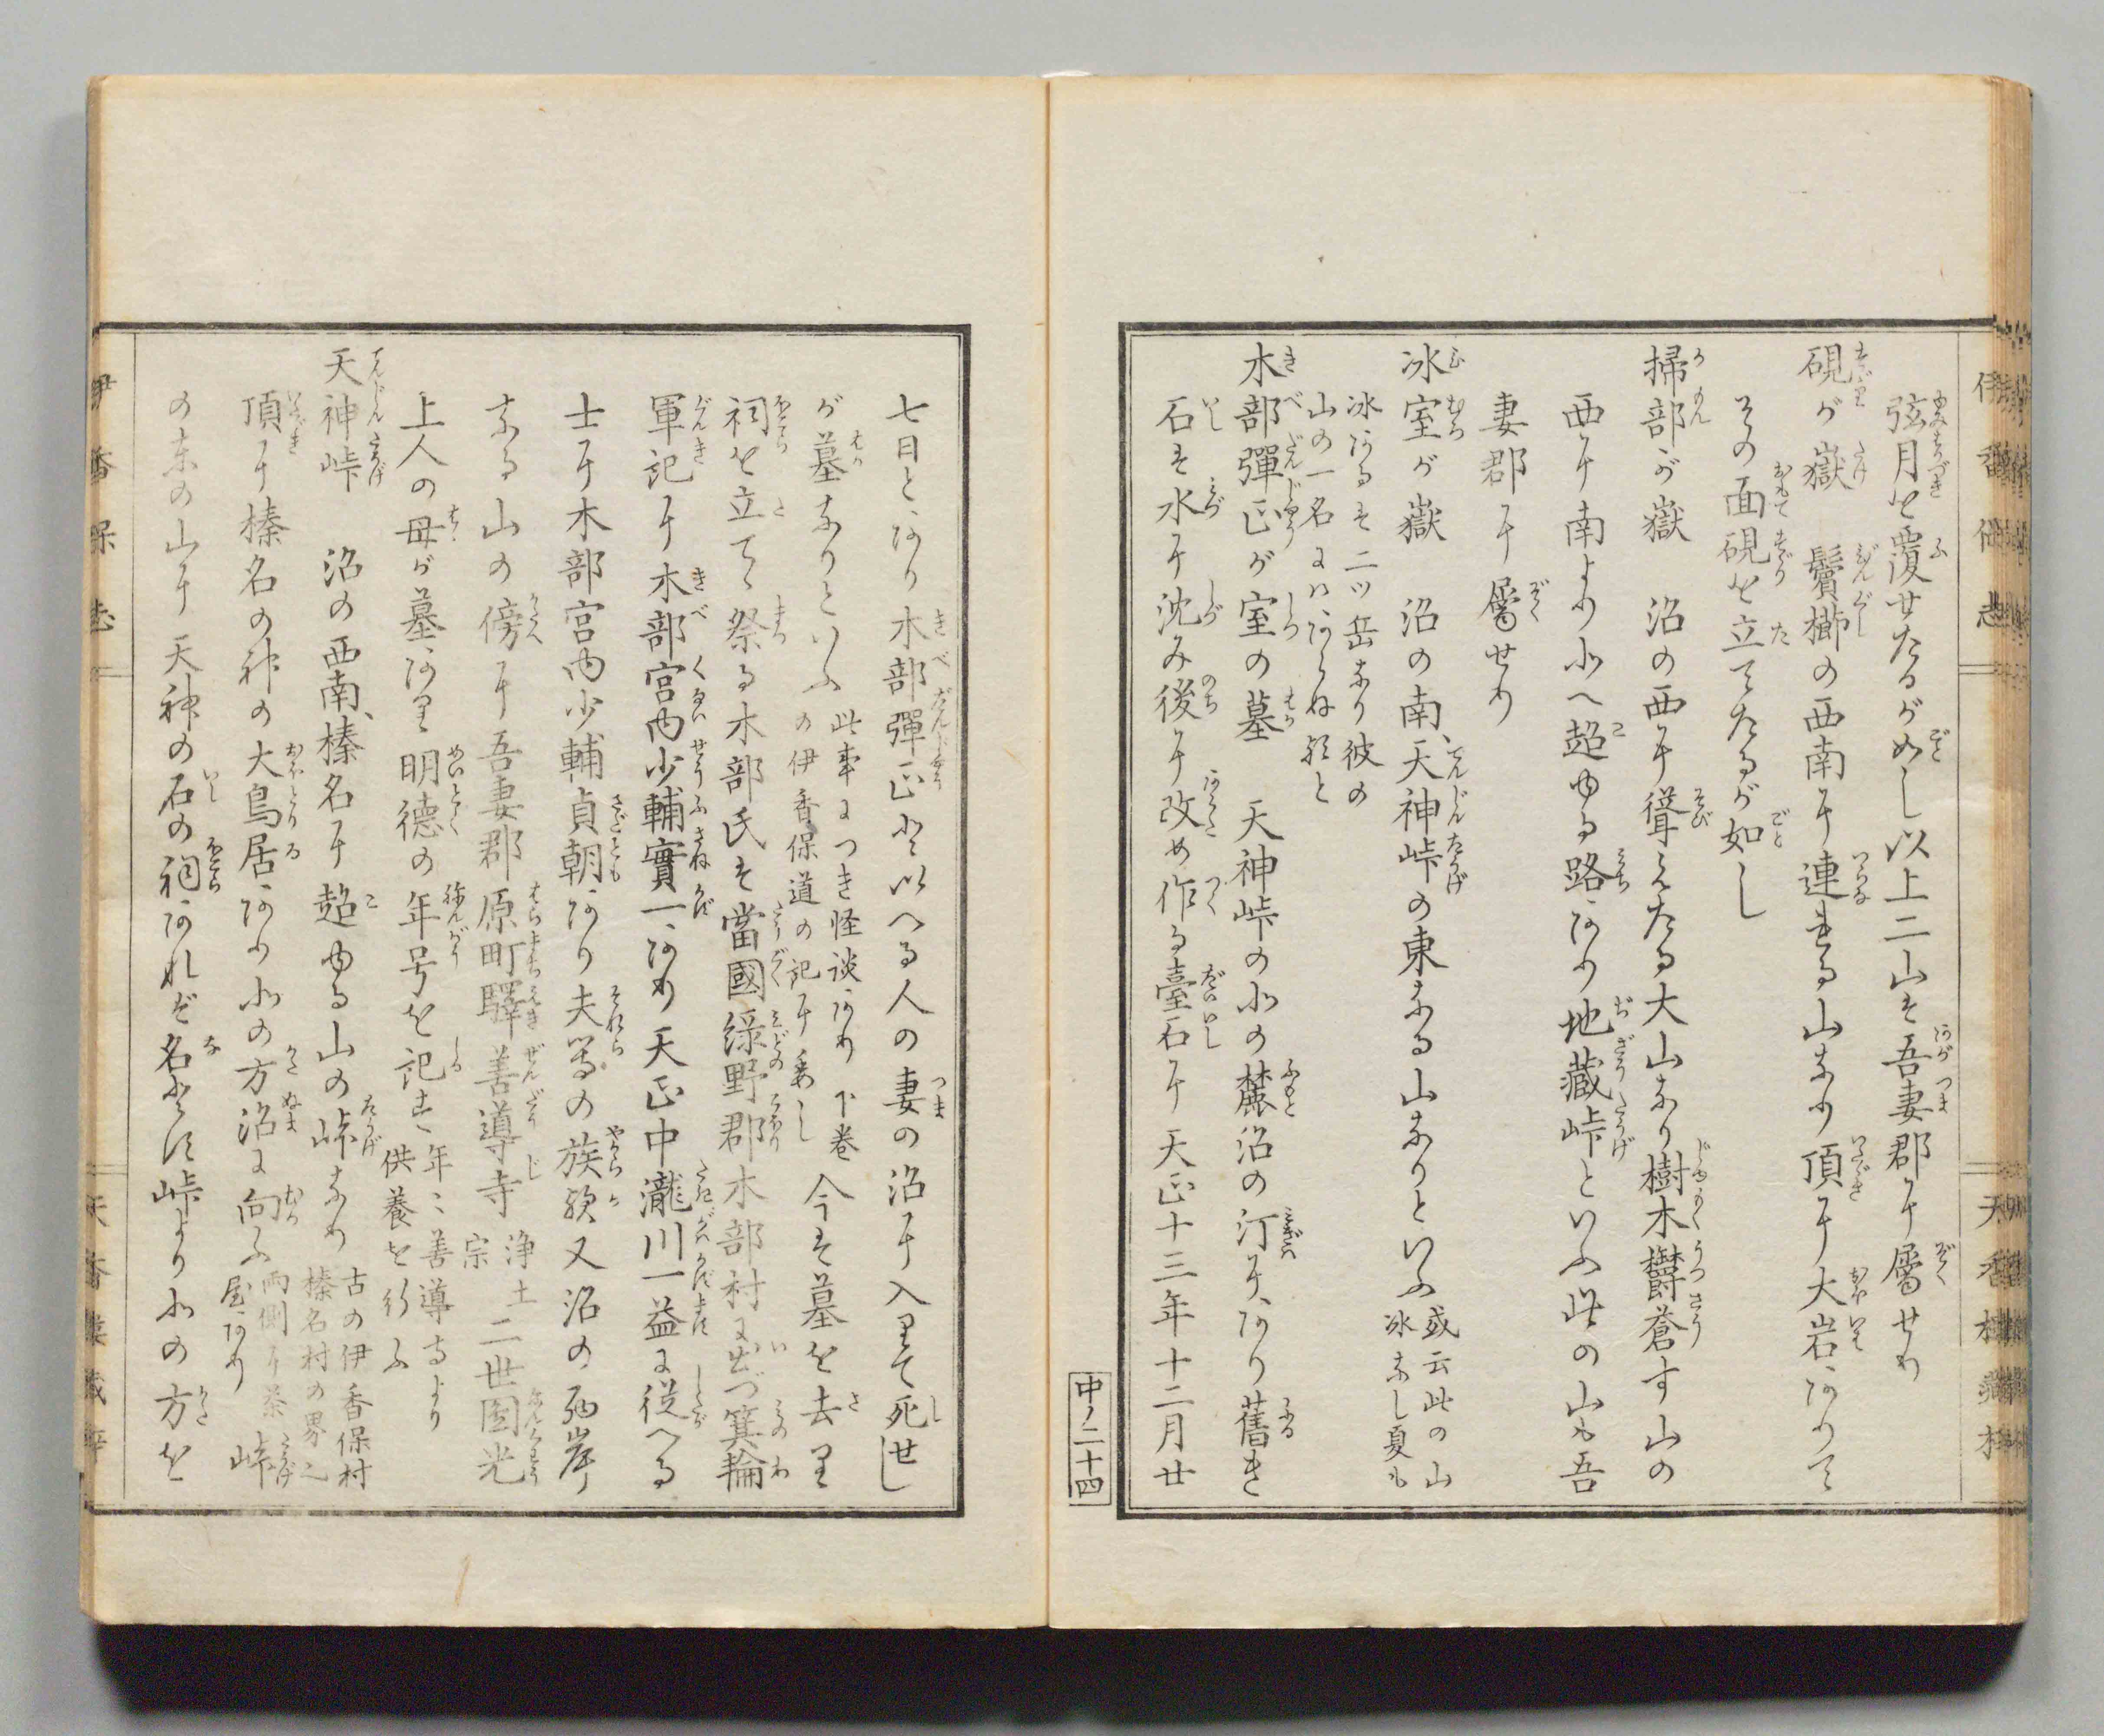 伊香保志
天香楼藏梓
弦月を覆せたるが如し以上二山は吾妻郡に屬せり
硯が嶽　鬢櫛の西南に連れる山なり頂に大岩ありて
その面硯を立てたるが如し
掃部が嶽　沼の西に聳えたる大山なり樹木欝蒼す山の
西に南より北へ超ゆる路あり地蔵峠といふ此の山も吾
妻郡に屬せり
氷室が嶽　沼の南、天神峠の東なる山なりといふ
或云此の山
氷なし夏も
氷あるは二ツ岳なり彼の
山の一名にはあらぬ歟と
木部彈正が室の墓　天神峠の北の麓沼の汀にあり舊き
石は水に沈み後に改め作る臺石に天正十三年十二月廿
中ノ二十四
七日とあり木部彈正と以へる人の妻の沼に入りて死せし
が墓なりといふ
此事につき怪談あり下巻
の伊香保道の記に委し
今は墓を去り
祠を立てゝ祭る木部氏は當國緑野郡木部村に出づ箕輪
軍記に木部宮内少輔實一あり天正中瀧川一益に從へる
士に木部宮内少輔貞朝あり夫等の族歟又沼の西岸
なる山の傍に吾妻郡原町驛善導寺
浄土
宗
二世圓光
上人の母が墓あり明德の年号を記す
年々善導寺より
供養を行ふ
天神峠　沼の西南、榛名に超ゆる山の峠なり
古の伊香保村
榛名村の界也
頂に榛名の神の大鳥居あり北の方沼に向ふ
両側に茶
屋あり
峠
の東の山に天神の石の祠あれば名とす峠より北の方を
伊香保志
天香楼藏梓